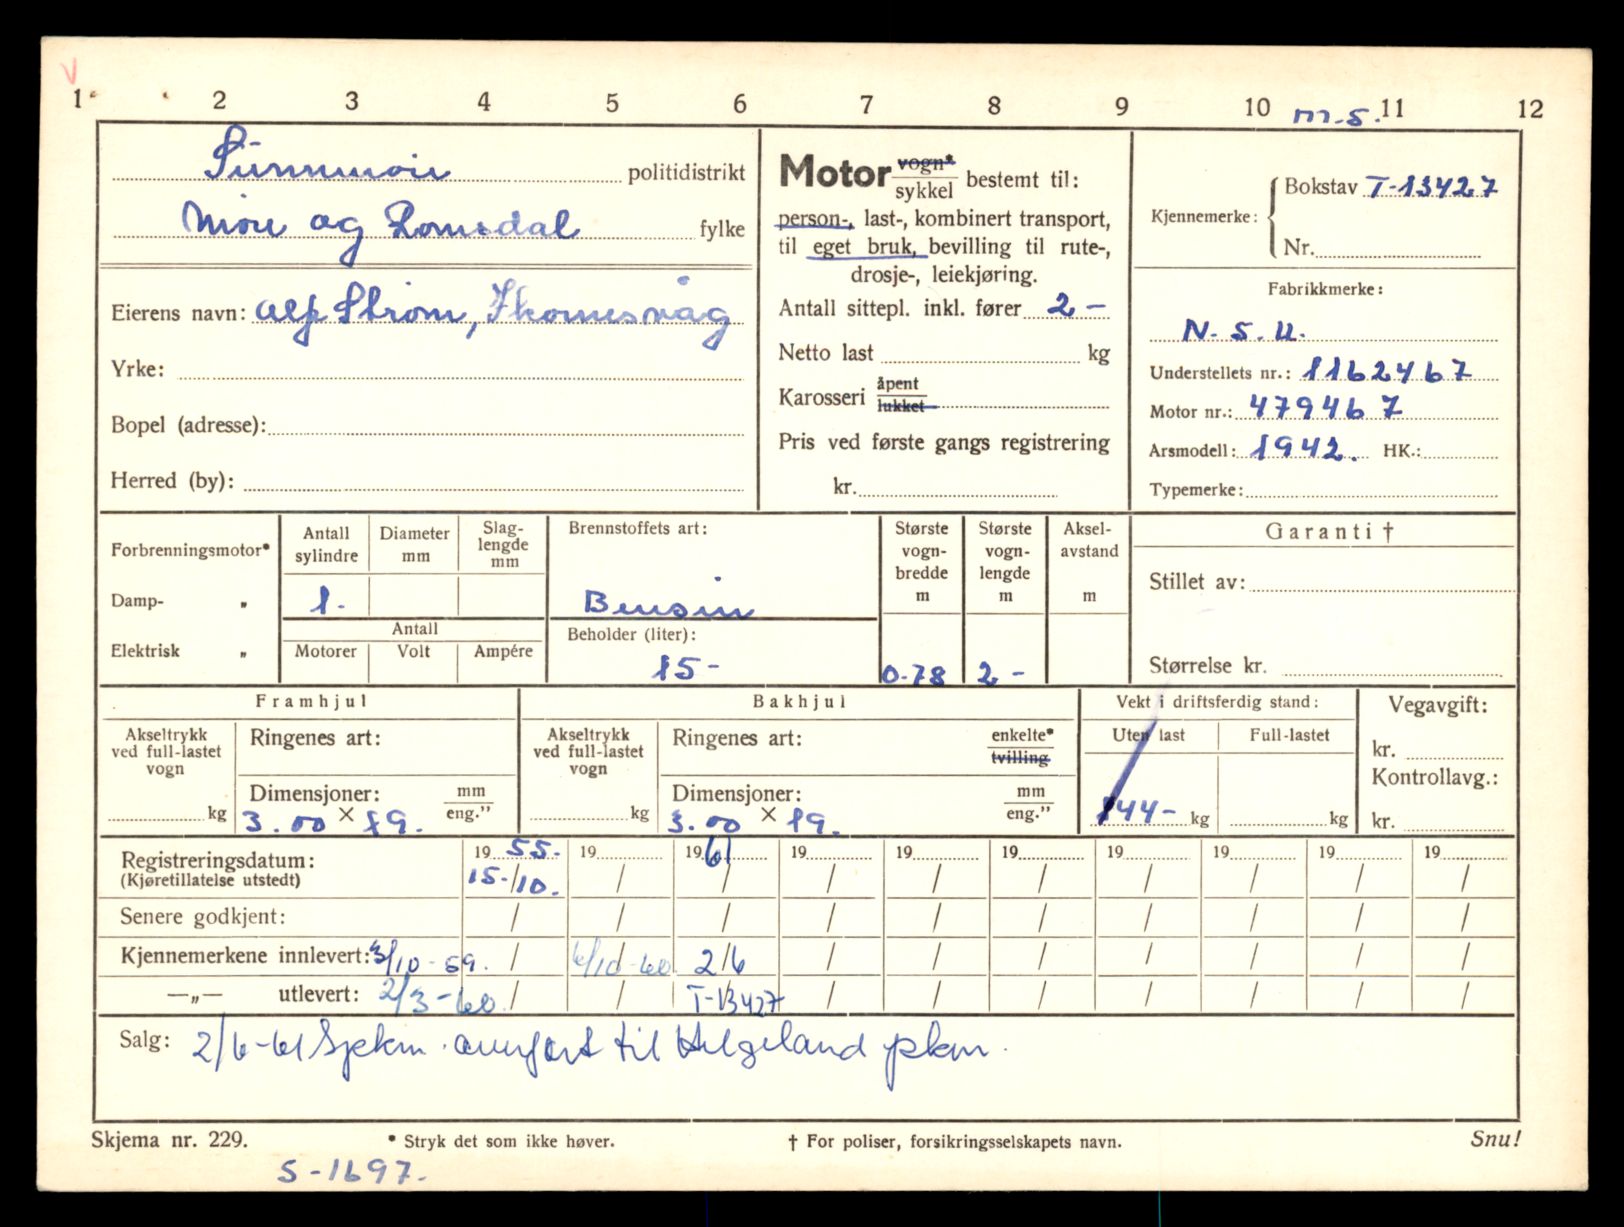 V
1 2 3 4 5 6 7 8 9 10 11 12
m.s.
Sunnmøre politidistrikt
Møre og Romsdal fylke
Eierens navn: Alf Strøm,
Yrke:
Bopel (adresse):
Herred (by):
Motor vogn* / sykkel bestemt til:
person-, last-, kombinert transport,
til eget bruk, bevilling til rute-,
drosje-, leiekjøring.
Antall sittepl. inkl. fører 2 -
Netto last kg
Karosseri åpent / lukket
Pris ved første gangs registrering
kr.
Kjennemerke: Bokstav T-13427
Nr.
Fabrikkmerke:
N.S.U.
Understellets nr.: 1162467
Motor nr.: 479467
Arsmodell: 1942. HK.:
Typemerke:
Forbrenningsmotor*
Damp- „
Elektrisk „
Antall sylindre
1.
Diameter mm
Slag-lengde mm
Antall
Motorer Volt Ampére
Brennstoffets art:
Bensin
Beholder (liter):
15-
Største vogn-bredde m
0.78
Største vogn-lengde m
2 -
Aksel-avstand m
Garanti †
Stillet av:
Størrelse kr.
Framhjul
Akseltrykk ved full-lastet vogn
kg
Ringenes art:
Dimensjoner: mm / eng.”
3.00 × 19.
Bakhjul
Akseltrykk ved full-lastet vogn
kg
Ringenes art: enkelte* / tvilling
Dimensjoner: mm / eng.”
3.00 × 19.
Vekt i driftsferdig stand:
Uten last Full-lastet
144- kg kg
Vegavgift:
kr.
Kontrollavg.:
kr.
Registreringsdatum: 19 55. 19 19 61 19 19 19 19 19 19 19
(Kjøretillatelse utstedt) 15-/10. / / / / / / / / /
Senere godkjent: / / / / / / / / / /
Kjennemerkene innlevert: 3/10-59. / 6/10-60 2/6 / / / / / / /
—„— utlevert: 2/3-60 / / T-13427 / / / / / / /
Salg: 2/6-61 Spkm. overført til Helgeland pkm.
Skjema nr. 229. * Stryk det som ikke høver. † For poliser, forsikringsselskapets navn. Snu!
S-1697.